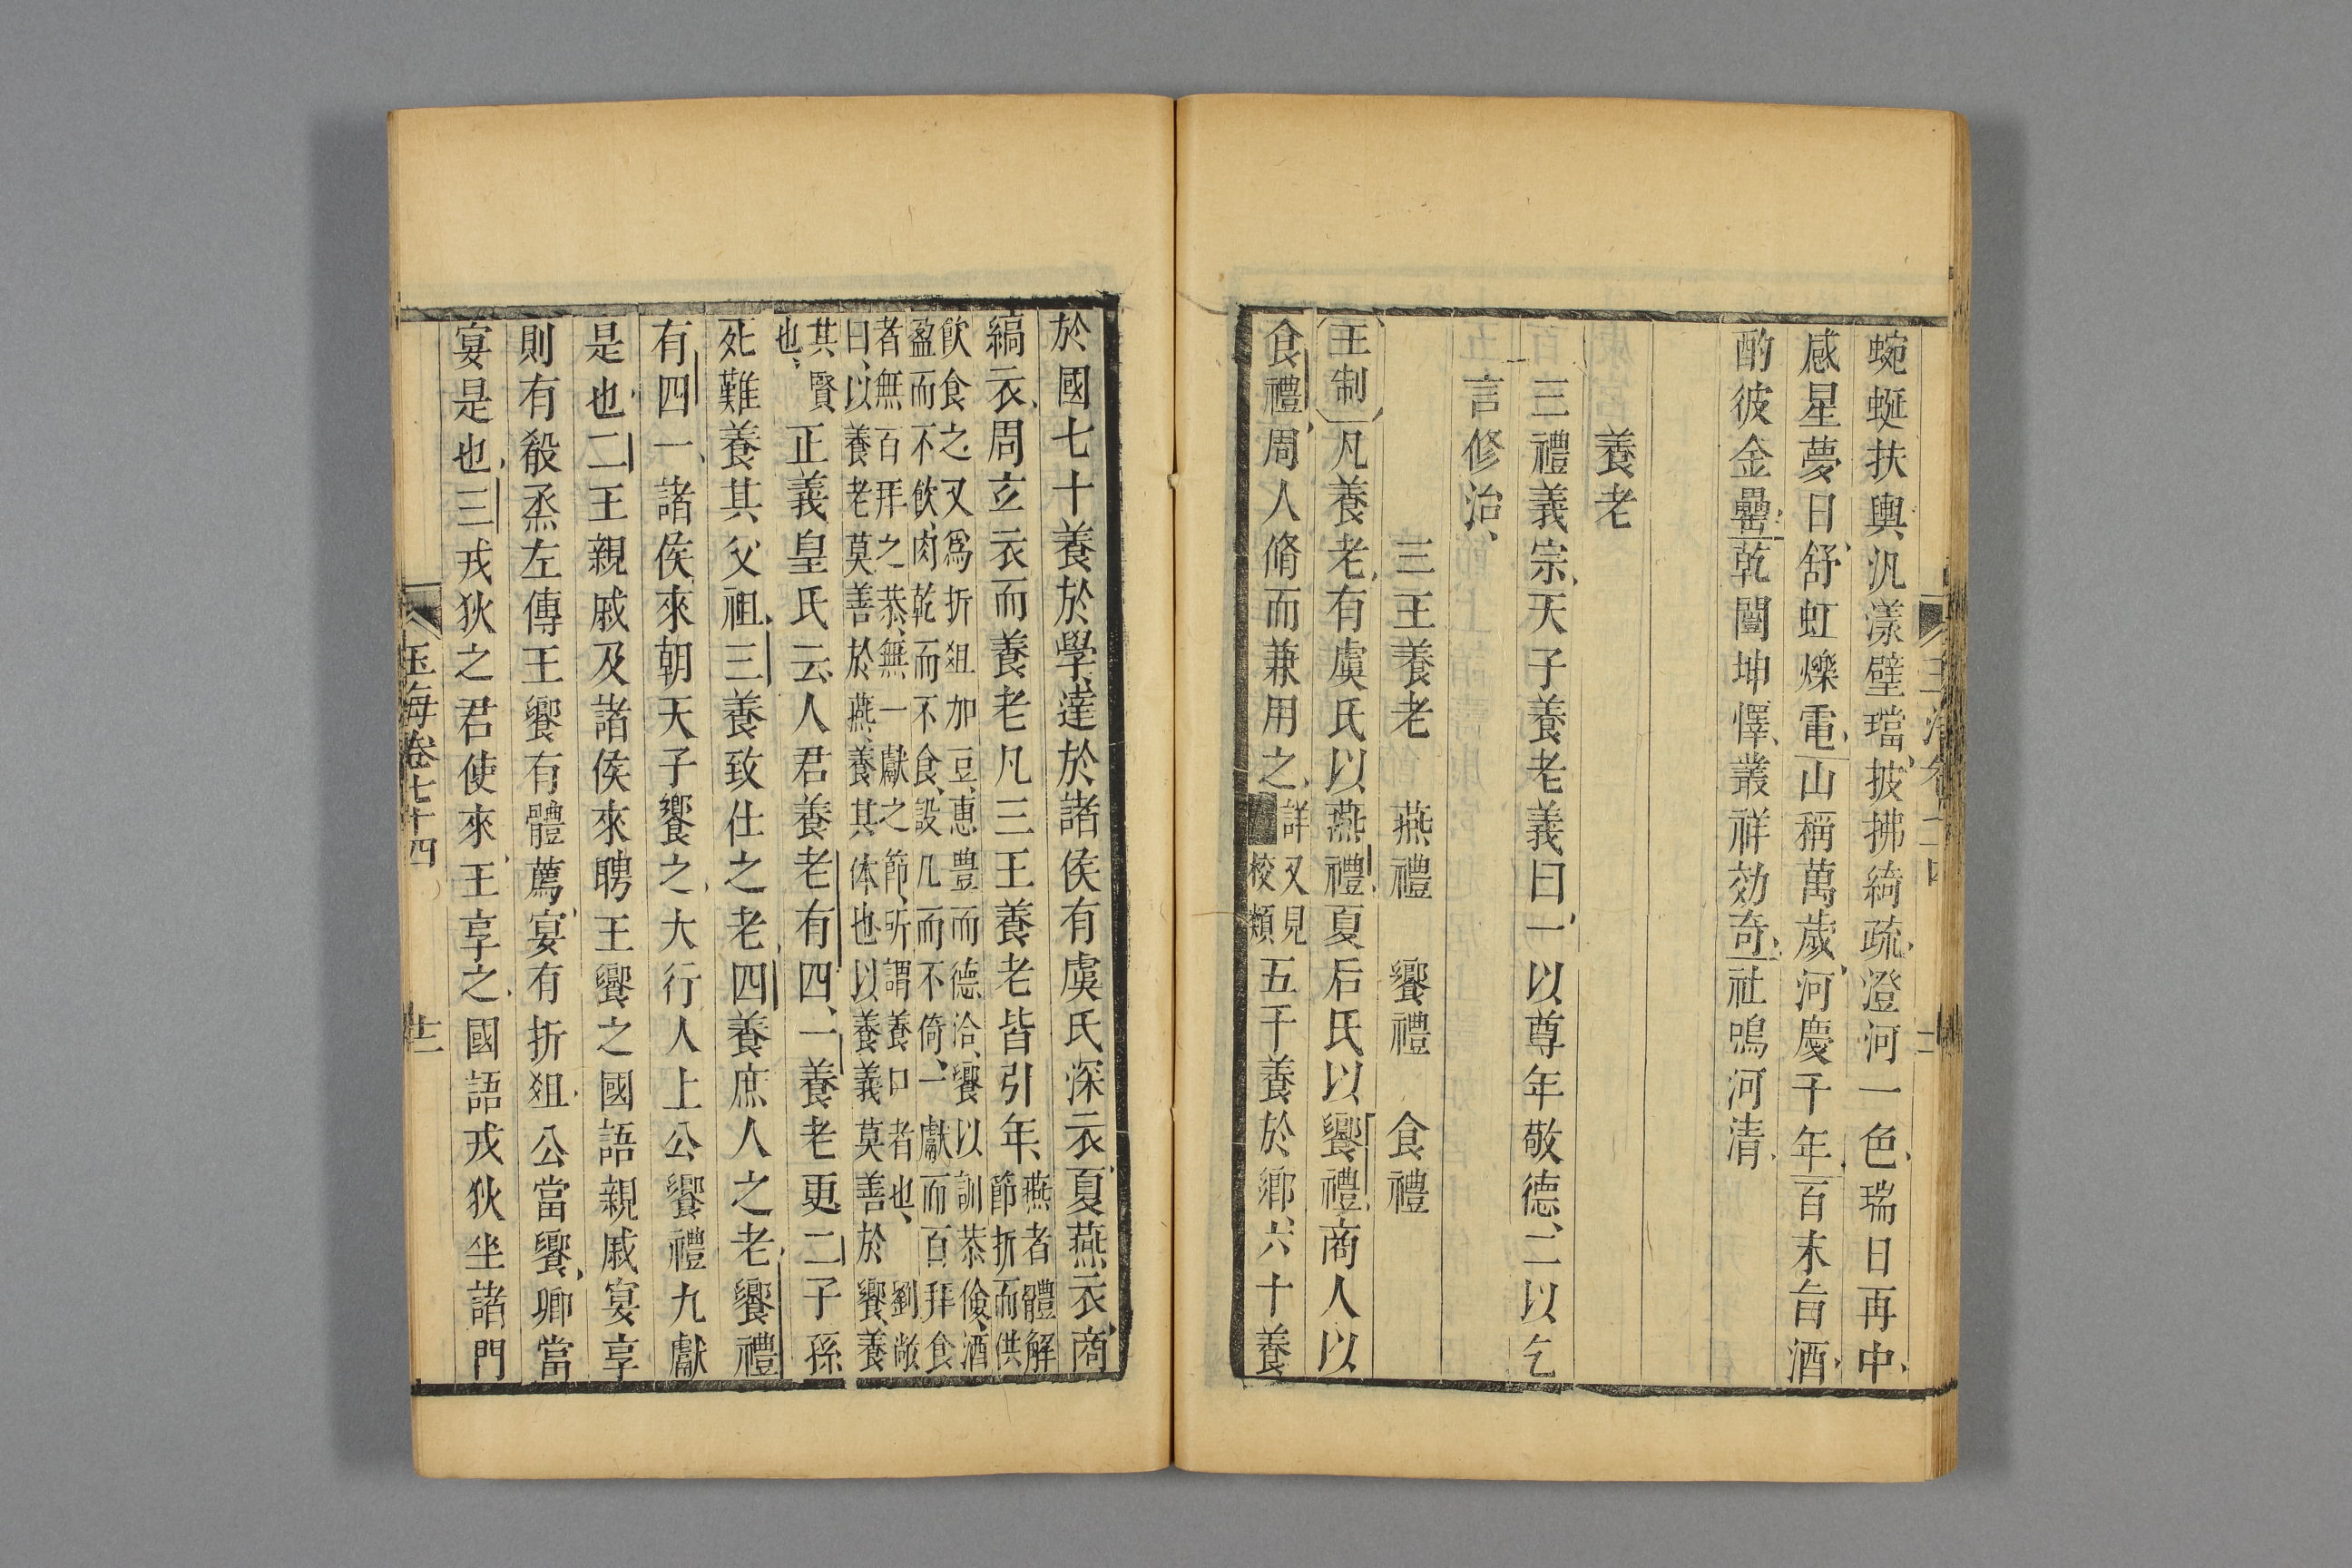 蜿蜒扶輿汎漾璧璫披拂綺疏澄河一色瑞日再中
感星夢日舒虹爍電山稱萬歲河慶千年百末旨酒
酌彼金罍乾闓坤懌叢祥効奇社鳴河清
養老
三禮義宗天子養老義曰一以尊年敬德二以乞
言修治
三王養老 燕禮 饗禮 食禮
王制凡養老有虞氏以燕禮夏后氏以饗禮商人以
食禮周人脩而兼用之詳又見校類五十養於鄉六十養
於國七十養於學達於諸侯有虞氏深衣夏燕衣商
縞衣周玄衣而養老凡三王養老皆引年燕者體解節折而供
飲食之又爲折俎加豆惠豊而德洽饗以訓恭儉酒
盈而不飲肉乾而不食設几而不倚一獻而百拜食
者無百拜之恭無一獻之節所謂養口者也劉敞
曰以養老莫善於燕養其体也以養義莫善於饗養
其賢也正義皇氏云人君養老有四一養老更二子孫
死難養其父祖三養致仕之老四養庶人之老饗禮
有四一諸侯來朝天子饗之大行人上公饗禮九獻
是也二王親戚及諸侯來聘王饗之國語親戚宴享
則有殽烝左傳王饗有體薦宴有折俎公當饗卿當
宴是也三戎狄之君使來王享之國語戎狄坐諸門
玉海卷七十四
廿二